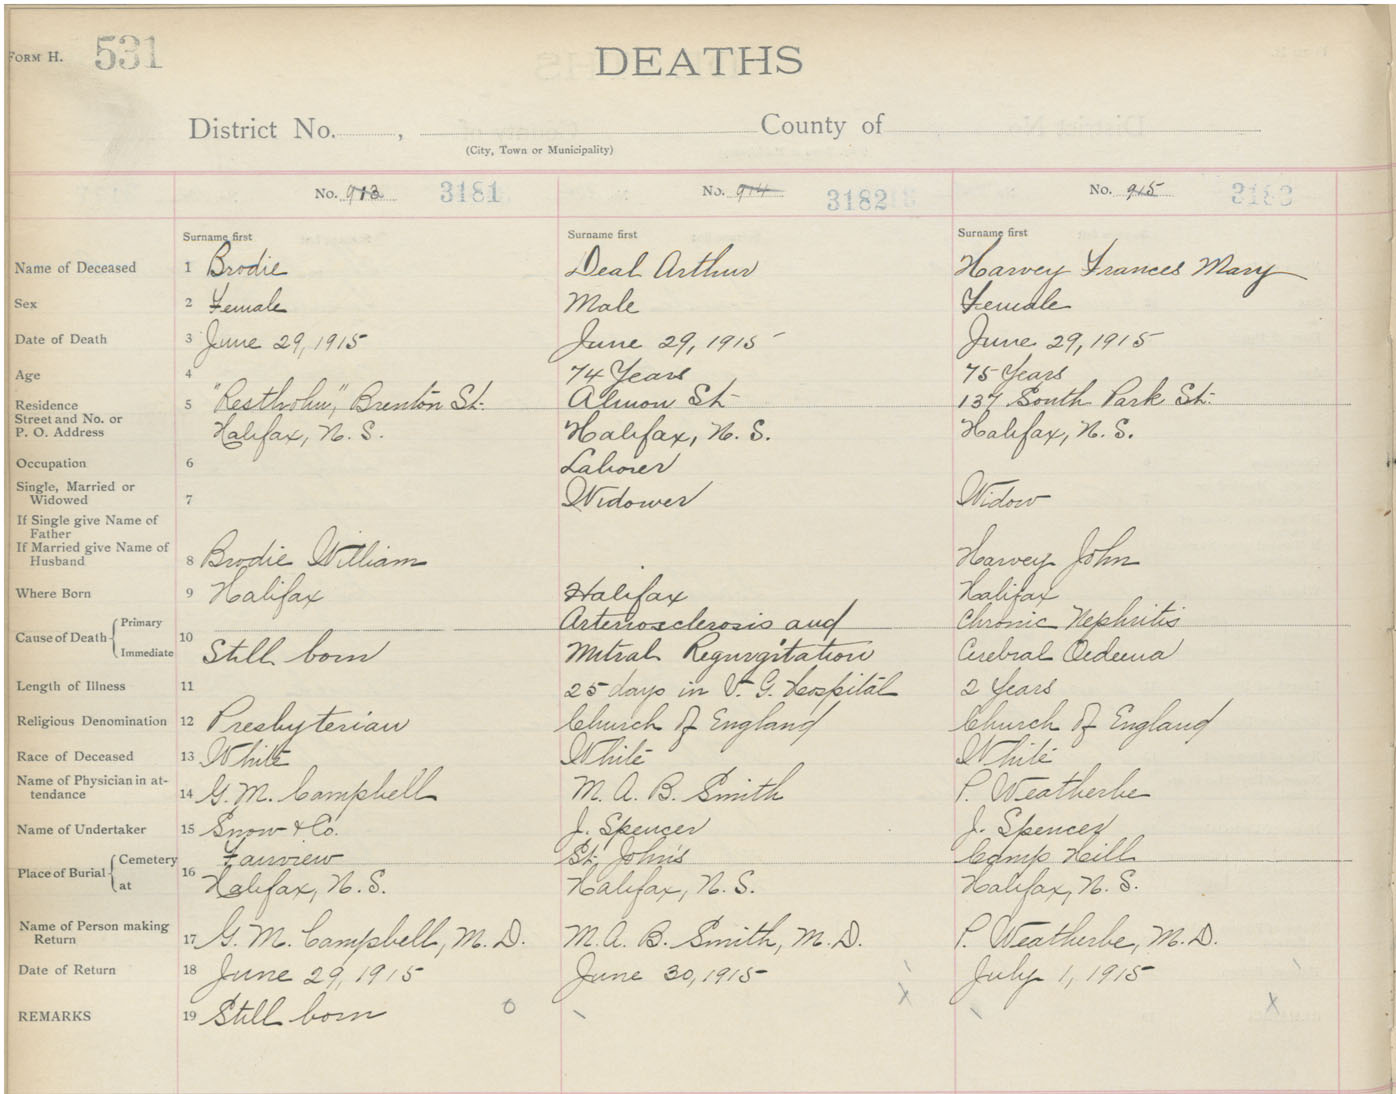 FORM H. 531
DEATHS
District No. , County of
(City, Town or Municipality)
No. 913 3181 No. 914 3182 No. 915 3183
Surname first Surname first Surname first
Name of Deceased 1 Brodie Deal Arthur Harvey Frances Mary
Sex 2 Female Male Female
Date of Death 3 June 29, 1915 June 29, 1915 June 29, 1915
Age 4 74 Years 75 Years
Residence 5 Brenton St. Almon St. 137 South Park St.
Street and No. or
P. O. Address Halifax, N. S. Halifax, N. S. Halifax, N. S.
Occupation 6 Laborer
Single, Married or
Widowed 7 Widower Widow
If Single give Name of
Father
If Married give Name of
Husband 8 Brodie William Harvey John
Where Born 9 Halifax Halifax Halifax
Cause of Death { Primary 10 Arteriosclerosis and Chronic Nephritis
Immediate Still born Mitral Regurgitation Cerebral Oedema
Length of Illness 11 25 days in V. G. Hospital 2 Years
Religious Denomination 12 Presbyterian Church of England Church of England
Race of Deceased 13 White White White
Name of Physician in at-
tendance 14 G. M. Campbell M. A. B. Smith P. Weatherbe
Name of Undertaker 15 Snow & Co. J. Spencer J. Spencer
Place of Burial { Cemetery 16 Fairview St. John's Camp Hill
at Halifax, N. S. Halifax, N. S. Halifax, N. S.
Name of Person making
Return 17 G. M. Campbell, M. D. M. A. B. Smith, M. D. P. Weatherbe, M. D.
Date of Return 18 June 29, 1915 June 30, 1915 July 1, 1915
REMARKS 19 Still born